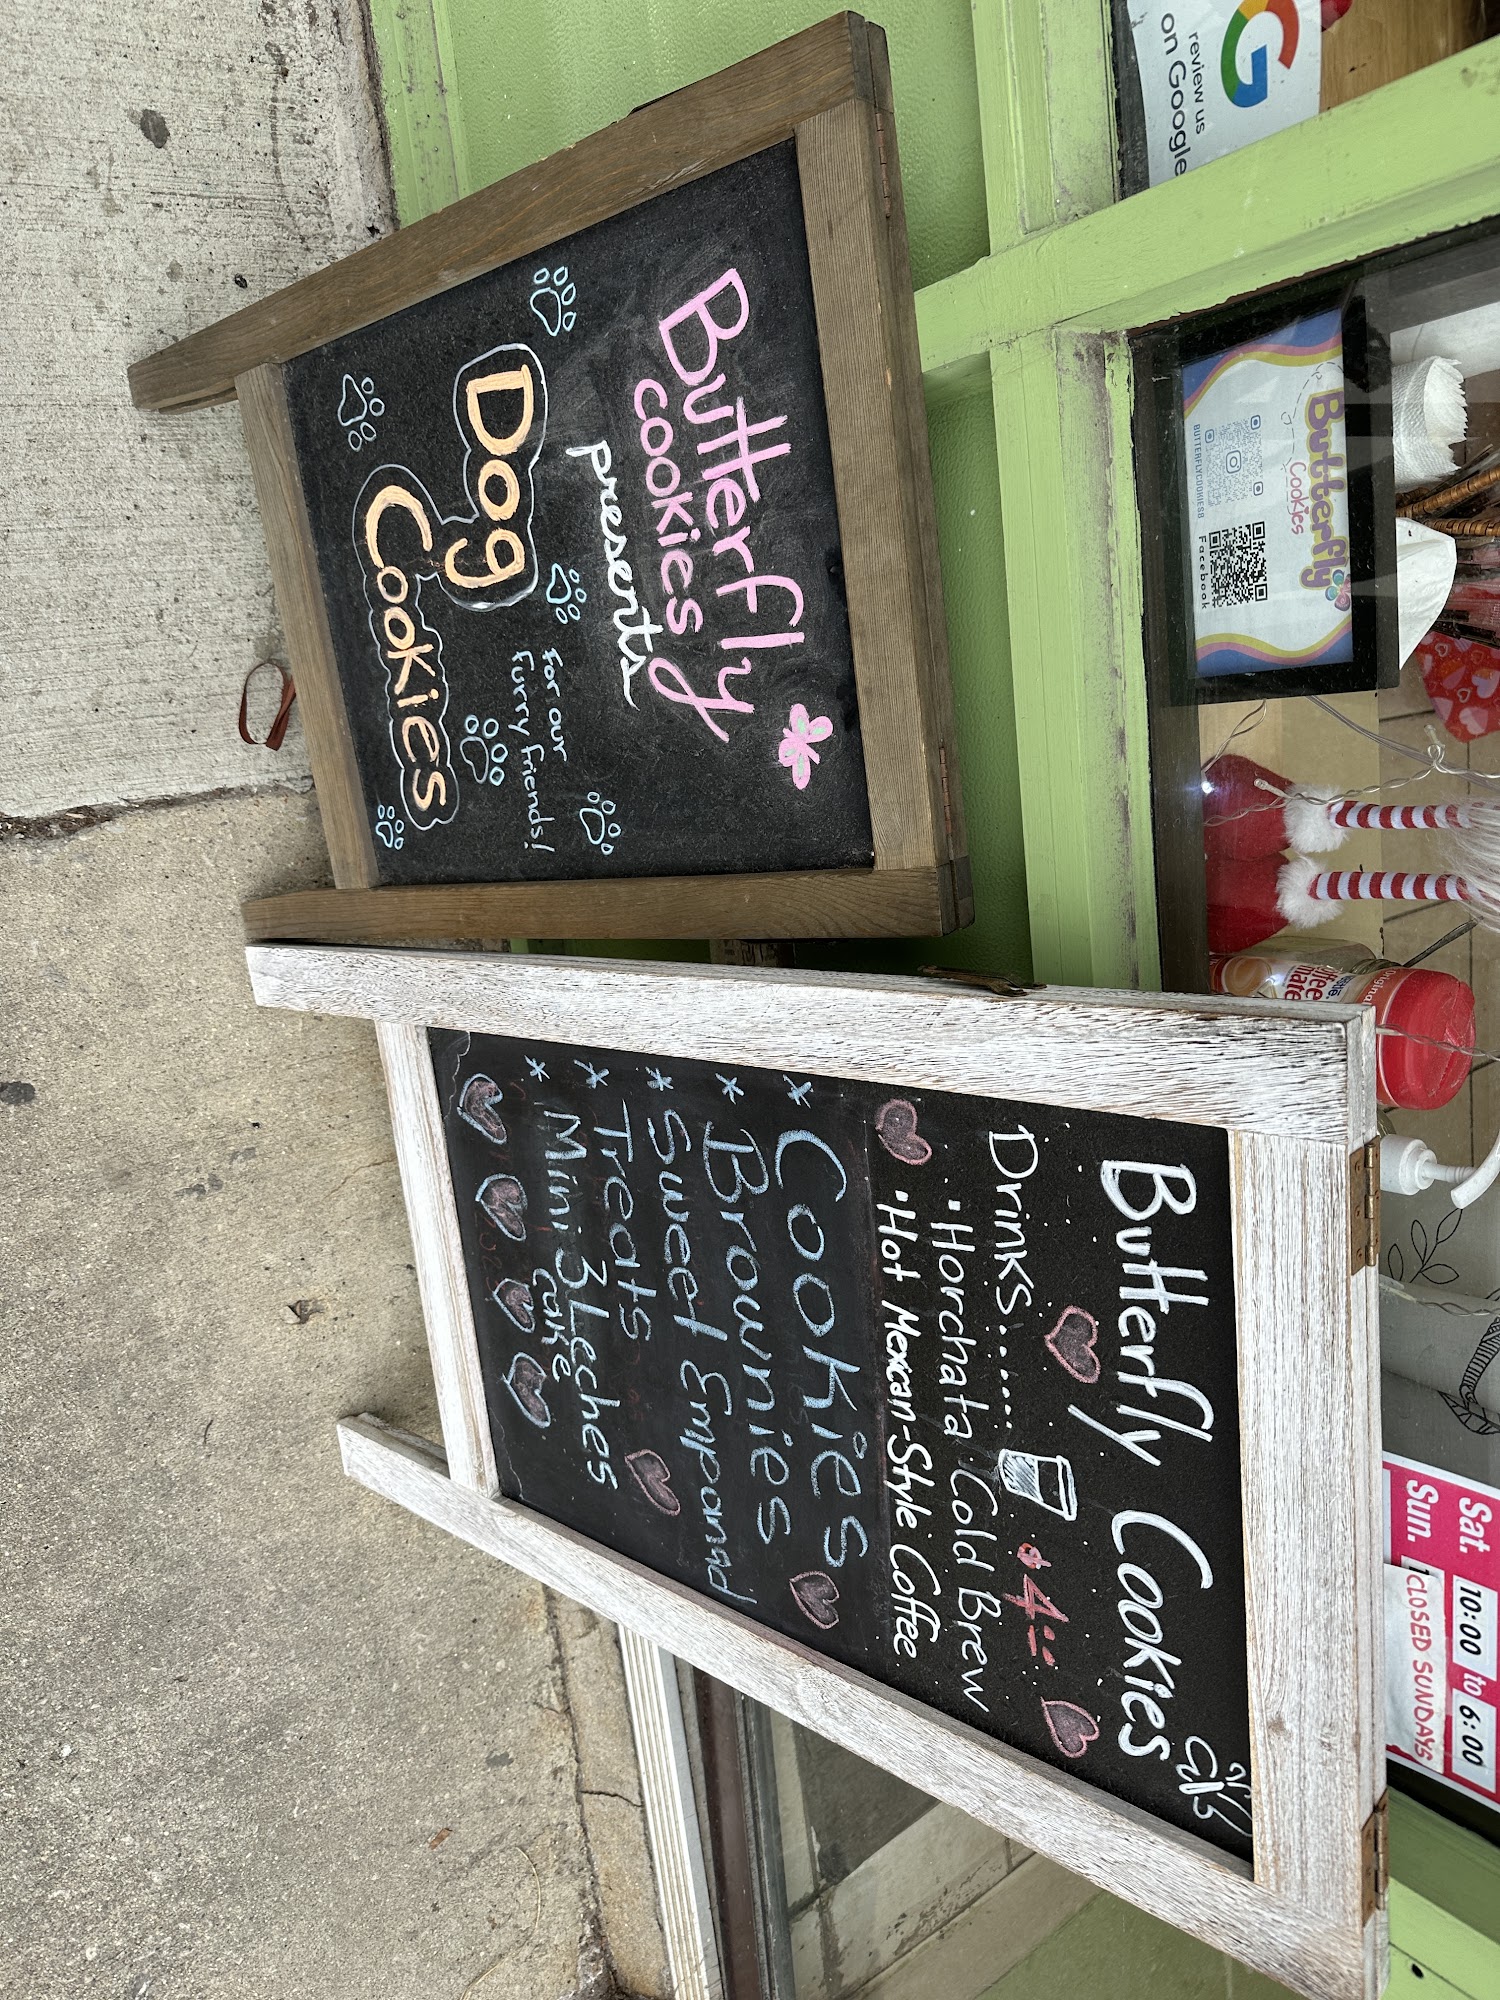 Butterfly
cookies
presents
Dog
Cookies
for our
furry friends!
Butterfly Cookies
Drinks....... $4
•Horchata Cold Brew
•Hot Mexican-Style Coffee
* Cookies
* Brownies
* Sweet Empanad
* Treats
* Mini 3Leches
Cake
review us
on Google
Butterfly
Cookies
BUTTERFLYCOOKIES8
Facebook
Original
Sat. 10:00 to 6:00
Sun. CLOSED SUNDAYS